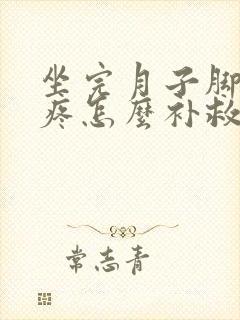 坐完月子脚
疼怎麼补救
常志青